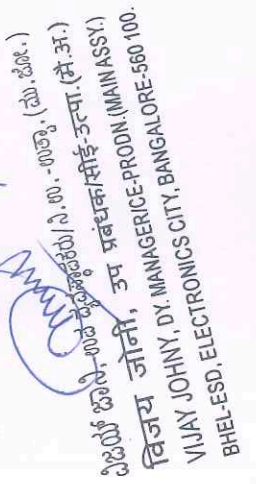 ವಿಜಯ್ ಜಾನಿ, ಉಪ ಪ್ರಬಂಧಕರು/ಸಿ.ಉ.-ಉತ್ಪಾ.(ಮು.ಜೋ.)
विजय जोनी, उप प्रबंधक/सीई-उत्पा.(मै.अ.)
VIJAY JOHNY, DY. MANAGER/CE-PRODN.(MAIN ASSY.)
BHEL-ESD, ELECTRONICS CITY, BANGALORE-560 100.